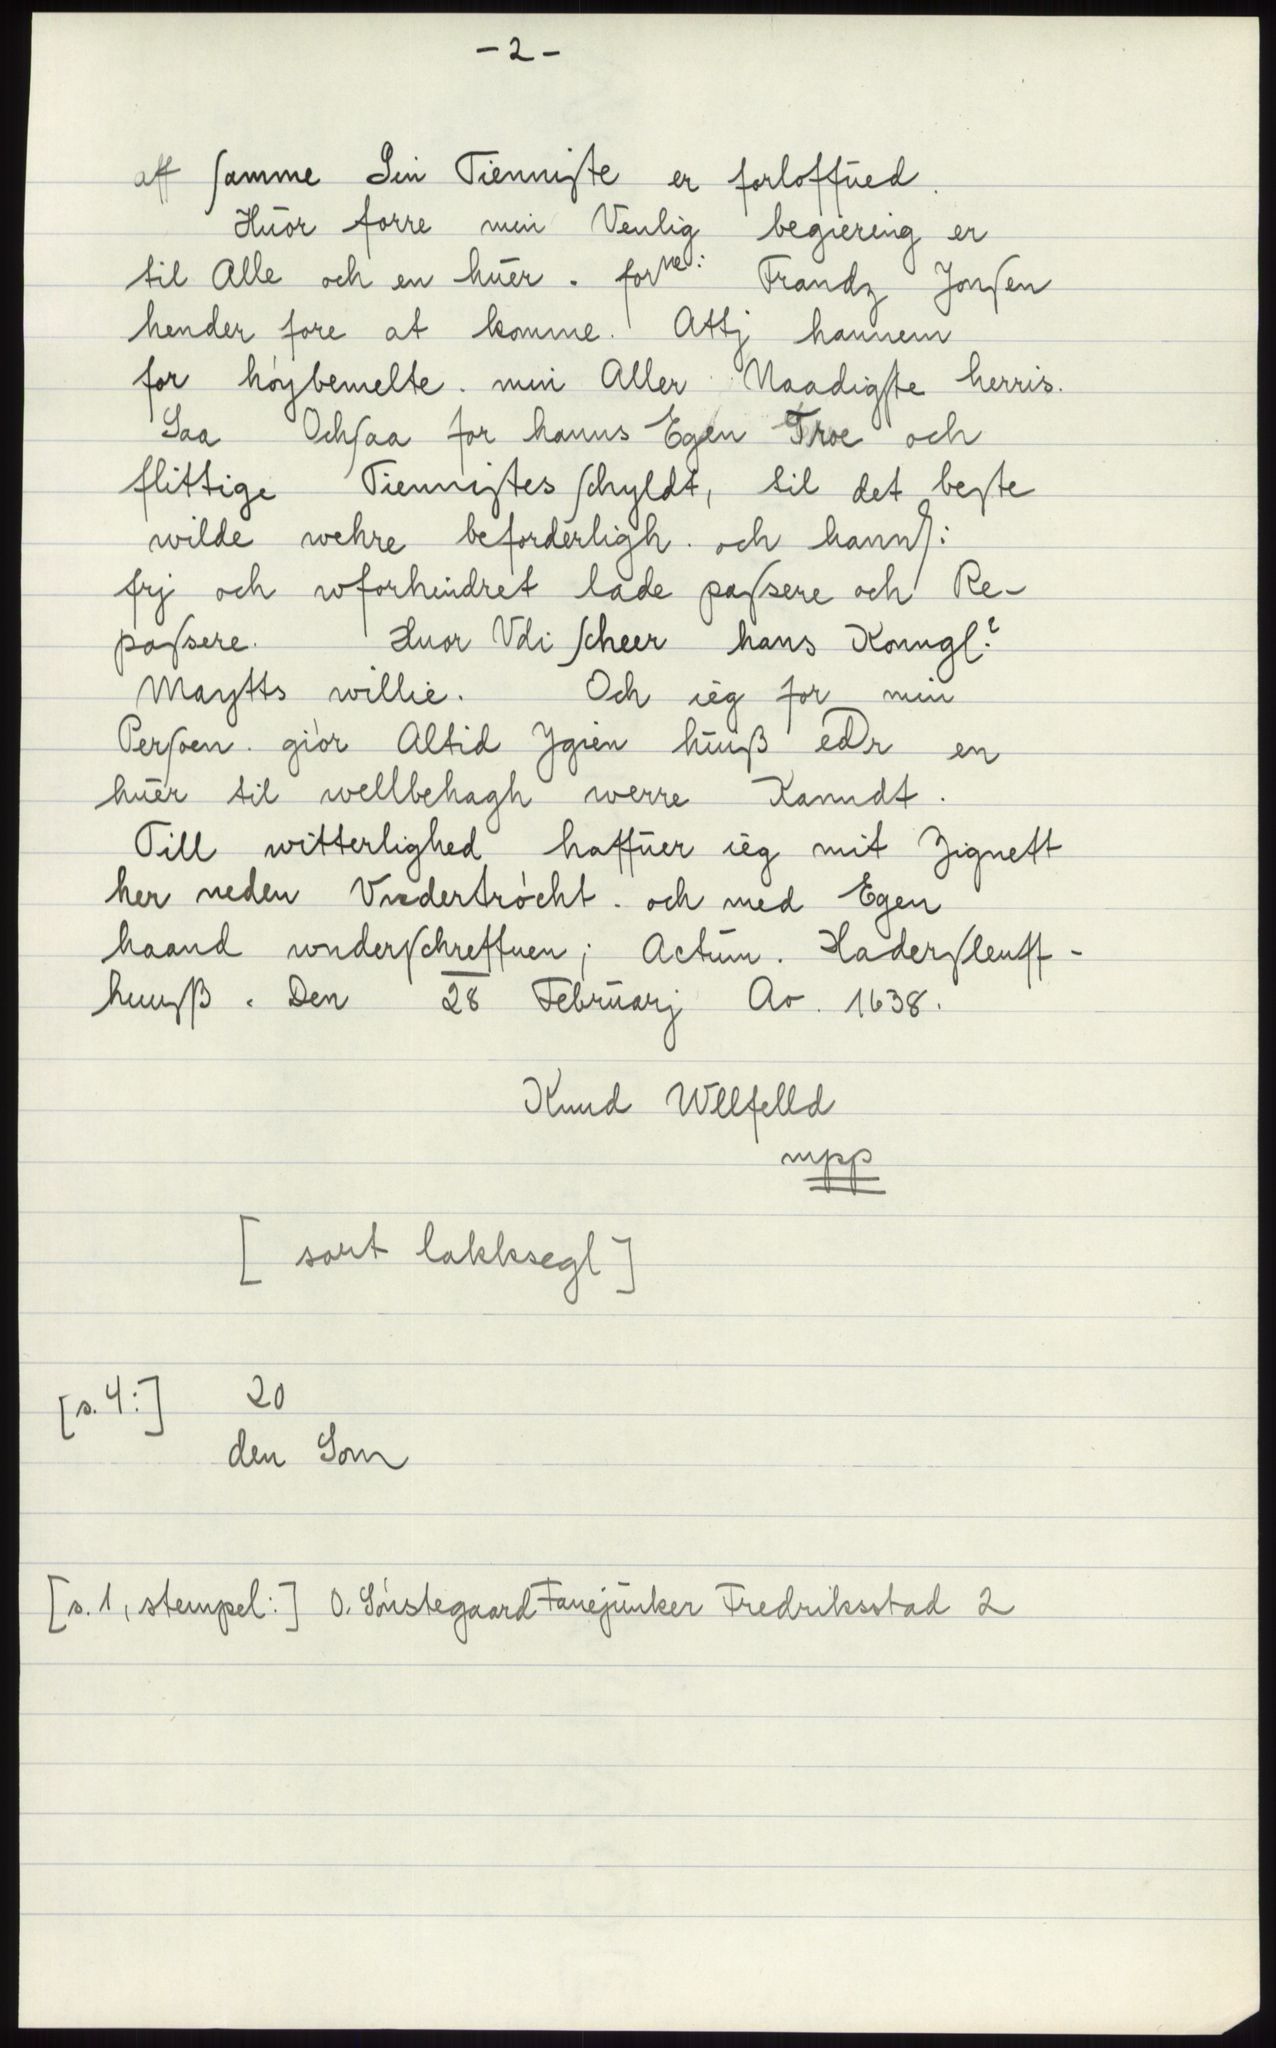 - 2 -
aff samme Sin Tienniste er forloffued.
Huor forre min Venlig begiering er
til Alle och en huer. forne: Frandz Jonsen
hender fore at komme. Attj hannem
for høybemelte. min Aller Naadigste herris.
Saa Ochsaa for hanns Egen Troe och
flittige Tiennistes schyldt, til det beste
wilde wehre beforderligh. och hanns:
frj och wforhindret lade passere och Re-
passere. Huor Vdi scheer hans Konngl:
Maytts willie. Och ieg for min
Persoen. giör Altid Jgien huuß eDr en
huer til wellbehagh werre Kanndt.
Till witterlighed haffuer ieg mit Zignett
her neden Vndertröcht. och med Egen
haand wnderschreffuen; Actum. Hadersleuff-
huusß. Den 28 Februarj Ao. 1638.
Knud Wllfelld
mpp
[sort lakksegl]
[s. 4:] 20
den Som
[s. 1, stempel:] O. Sönstegaard Fanejunker Fredriksstad 2